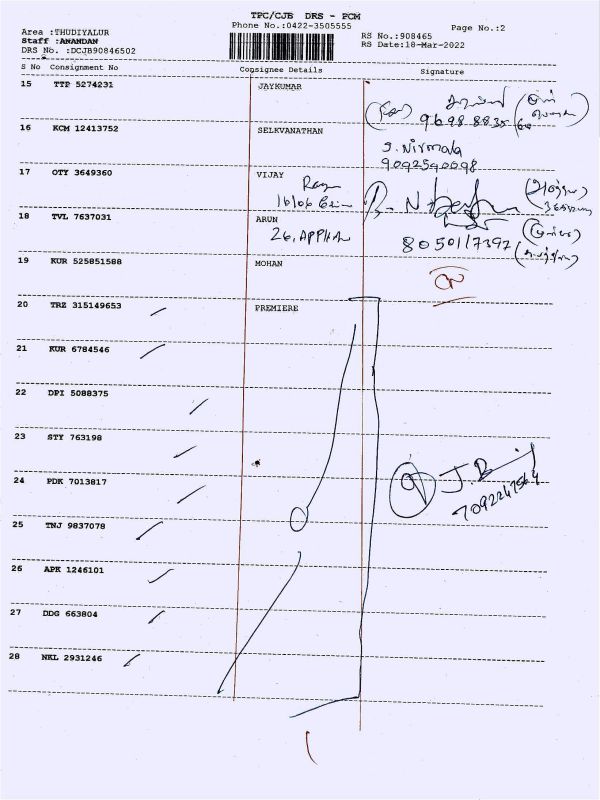 TPC/CJB DRS - PCM
Phone No.:0422-3505555
Page No.:2
Area :THUDIYALUR
Staff :ANANDAN
DRS No. :DCJB90846502
RS No.:908465
RS Date:18-Mar-2022
S No Consignment No Consignee Details Signature
15 TTP 5274231 JAYKUMAR
16 KCM 12413752 SELKVANATHAN
S. Nirmala
9092590098
17 OTY 3649360 VIJAY
18 TVL 7637031 ARUN
8050117397
19 KUR 525851588 MOHAN
20 TRZ 315149653 PREMIERE
21 KUR 6784546
22 DPI 5088375
23 STY 763198
24 PDK 7013817
25 TNJ 9837078
26 APK 1246101
27 DDG 663804
28 NKL 2931246